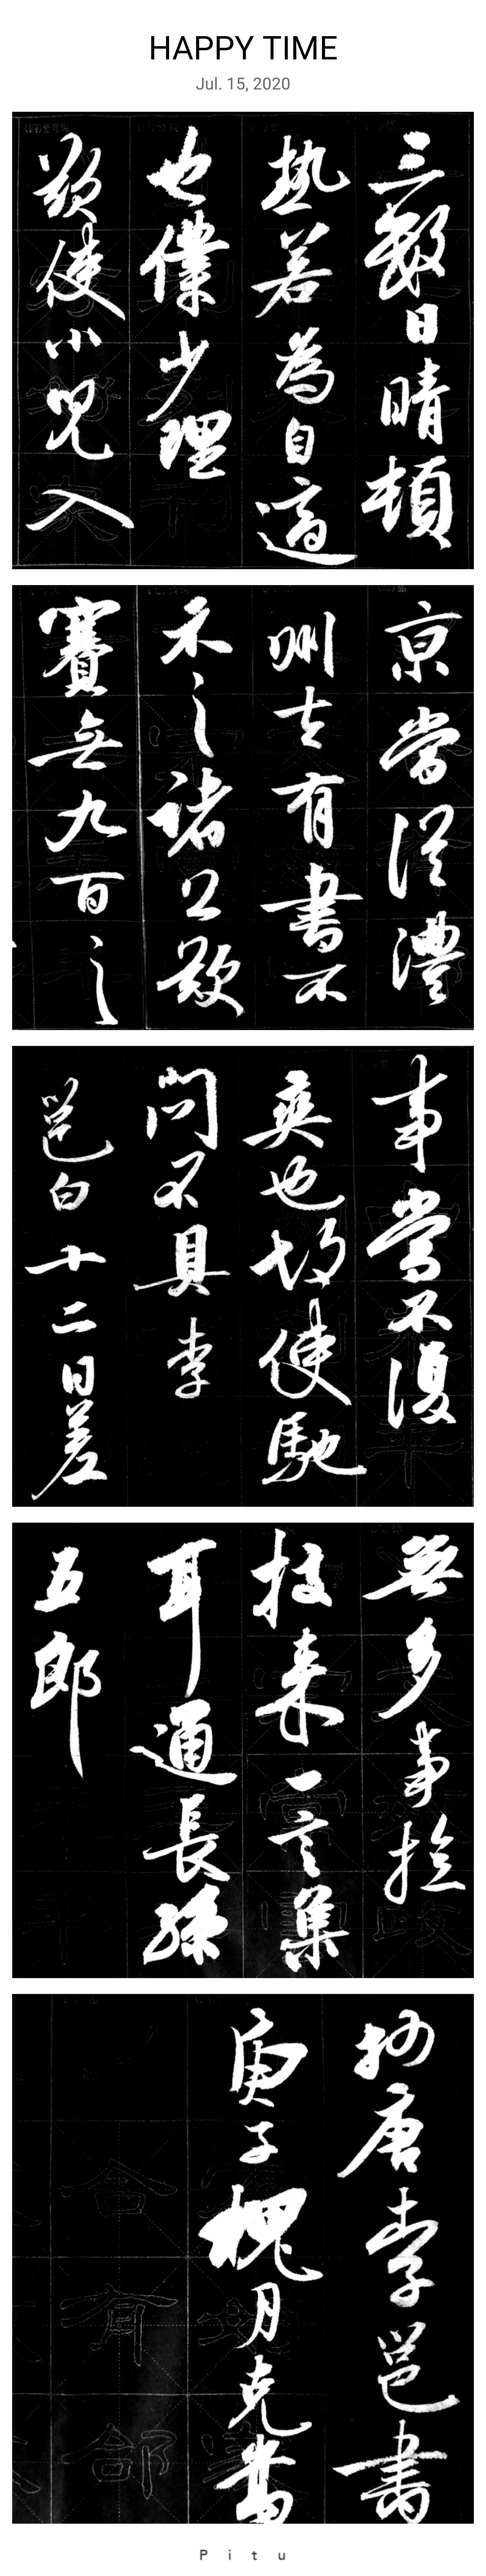 HAPPY TIME
Jul. 15, 2020
三數日晴頓
熱若為自適
也僕少理
欲使小兒入
京當從澧
州去有書不
示之諸公欵
賽無九百之
事當不復
爽也故使馳
問不具李
邕白十二日差
無多事撿
校來一言集
耳通長孫
五郎
唐李邕書
庚子槐月克
Pitu